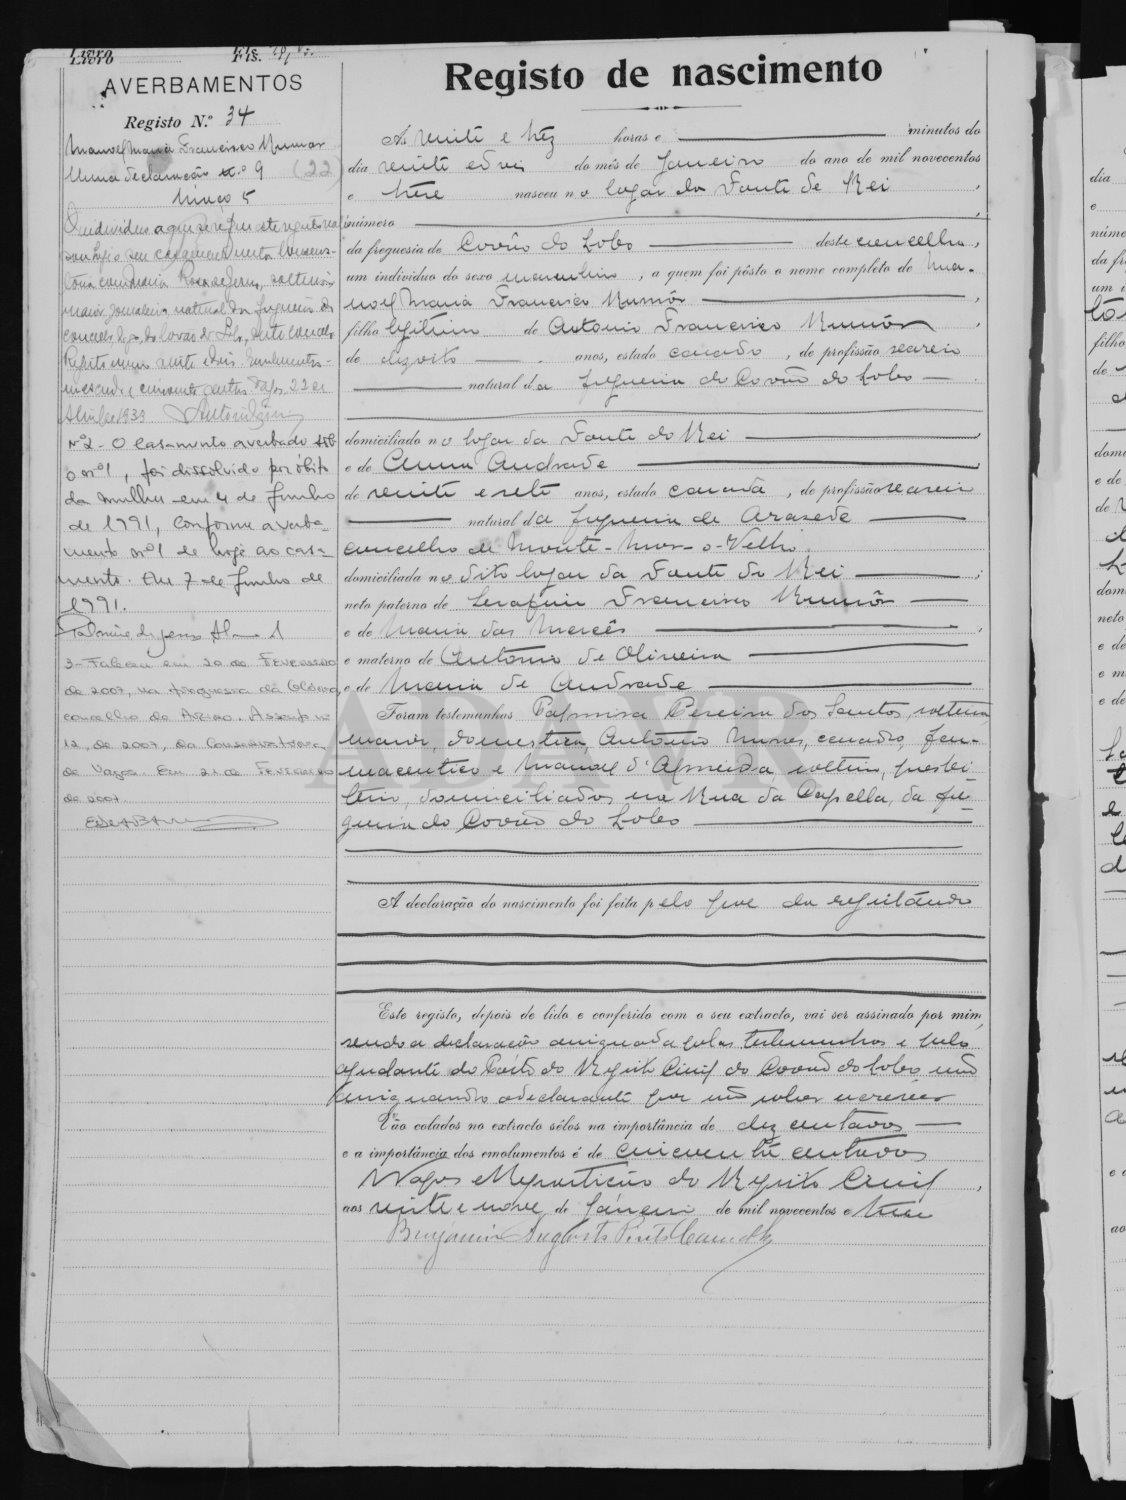 Livro Fls.
AVERBAMENTOS
Registo N.º 34
Manoel Maria Francisco Rumor
Uma declaração n.º 9 (22)
Maço 5
tóia com Maria Rosa de Jesus, solteira
maior, jornaleira natural da freguesia de
Covão do Lobo, deste concelho
Registo numero vinte e dois. Emolumentos
cincoenta centavos. Vagos, 22 de
Abril de 1939
Nº2 - O casamento averbado sob
o nº1, foi dissolvido por óbito
da mulher em 4 de Junho
de 1991, conforme averba-
mento nº1 de hoje ao casa-
mento. Em 7 de Junho de
1991.
3 - Faleceu em 20 de Fevereiro
de 2007, na freguesia da Glória,
concelho de Aveiro. Assento nº
12, de 2007, da Conservatória
de Vagos. Em 21 de Fevereiro
de 2007.
Registo de nascimento
Às vinte e trez horas e minutos do
dia vinte e dois do mês de Janeiro do ano de mil novecentos
e treze nasceu no lugar da Fonte de Rei
número
da freguesia de Covão do Lobo deste concelho,
um indivíduo do sexo masculino, a quem foi pôsto o nome completo de Ma-
noel Maria Francisco Rumôr
filho legítimo de Antonio Francisco Rumôr
de dezoito anos, estado casado, de profissão seareiro
natural da freguesia do Covão do Lobo
domiciliado no lugar da Fonte do Rei
e de Anna Andrade
de vinte e sete anos, estado casada, de profissão seareira
natural da freguesia de Arazede
concelho de Monte-Mor-o-Velho
domiciliada no dito lugar da Fonte do Rei
neto paterno de Serafim Francisco Rumôr
e de Maria das Mercês
e materno de António de Oliveira
e de Maria de Andrade
Foram testemunhas Palmira Pereira dos Santos, solteira
maior, domestica, António Nunes, casado, far-
maceutico e Manoel d'Almeida, solteiro, presbi-
tero, domiciliados na Rua da Capella, da fre-
guesia do Covão do Lobo
A declaração do nascimento foi feita pelo pae do registando
Este registo, depois de lido e conferido com o seu extracto, vai ser assinado por mim,
sendo a declaração assignada pelas testemunhas e pelo
ajudante do Posto do Registo Civil do Covão do Lobo não
assignando o declarante por não saber escrever
Vão colados no extracto sêlos na importância de dez centavos
e a importância dos emolumentos é de cincoenta centavos
Vagos e Repartição do Registo Civil,
aos vinte e nove de Janeiro de mil novecentos e treze
ADAVR